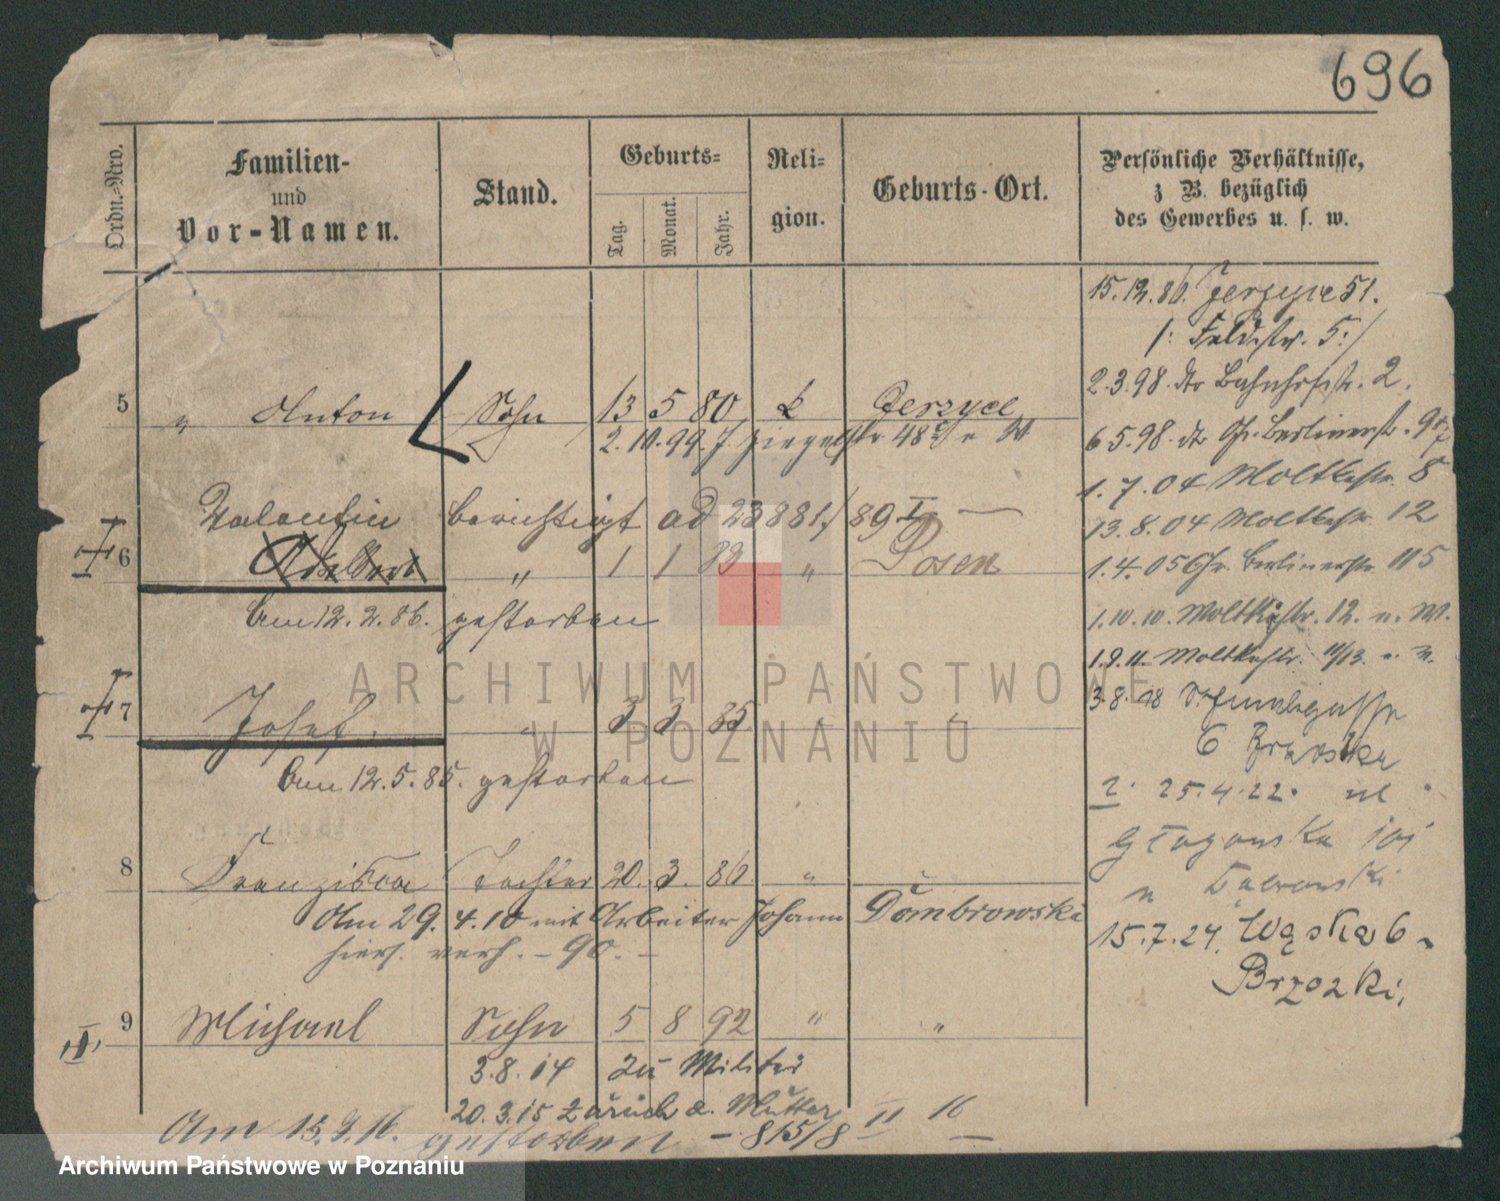 696
Ordn.-Nro.
Familien-
und
Vor-Namen.
Stand.
Geburts-
Tag.
Monat.
Jahr.
Reli-
gion.
Geburts-Ort.
Persönliche Verhältnisse,
z B. bezüglich
des Gewerbes u. s. w.
15.12.86. Jerzyce 51.
/: Feldstr. 5:/
2.3.98. dto Bahnhofstr. 2.
5 " Anton Sohn 13 5 80 k Jerzyce
2.10.99. J. Ziegelstr. 48
6 5.98. dto Gr. Berlinerstr. 97
1.7.04 Moltkestr. 8
Valentin berichtigt ad 23881/89 I
13.8.04 Moltkestr 12
6 Adalbert " 1 1 83 " Posen
1.4.05 Gr. Berlinerstr. 115
Am 12.2.86. gestorben
1.10.10. Moltkestr. 12. u. W.
1.9.11. Moltkestr. 11/13. u. W.
7 Josef. " 3 3 85
3.8.18
6
Am 12.5.85. gestorben
25.4.22. ul
Głogowska 101
8 Franziska Tochter 20. 3. 86 "
Am 29.4.10 mit Arbeiter Johann Dombrowski
hiers. verh. - 90. -
15.7.24. Wąska 6
Brzozki.
9 Michael Sohn 5 8 92 " "
3.8.14 zu Militär
20.3.15 zurück z. Mutter
Am 13.9.16. gestorben - 815/8 II 16
ARCHIWUM PAŃSTWOWE
W POZNANIU
Archiwum Państwowe w Poznaniu